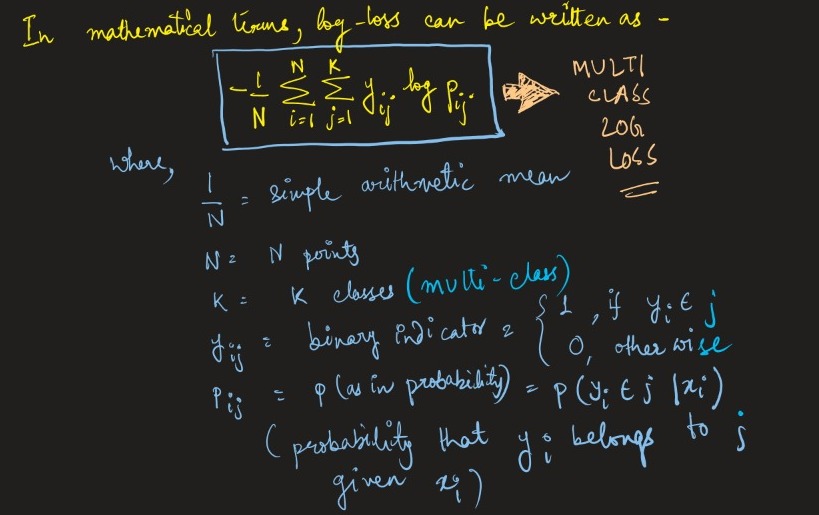 In mathematical terms, log-loss can be written as -
-1/N Σ_{i=1}^{N} Σ_{j=1}^{K} y_ij log p_ij
MULTI
CLASS
LOG
LOSS
where,
1/N = simple arithmetic mean
N = N points
K = K classes (multi-class)
y_ij = binary indicator = { 1, if y_i ∈ j
0, otherwise
P_ij = p (as in probability) = P(y_i ∈ j | x_i)
(probability that y_i belongs to j
given x_i)